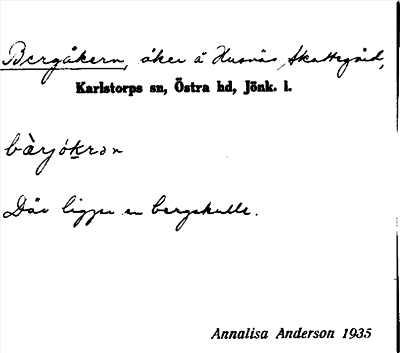 Bergåkern, åker å Husnäs, Skattegård,
Karlstorps sn, Östra hd, Jönk. l.
bàrjókrən
Där ligger en bergskulle.
Annalisa Anderson 1935